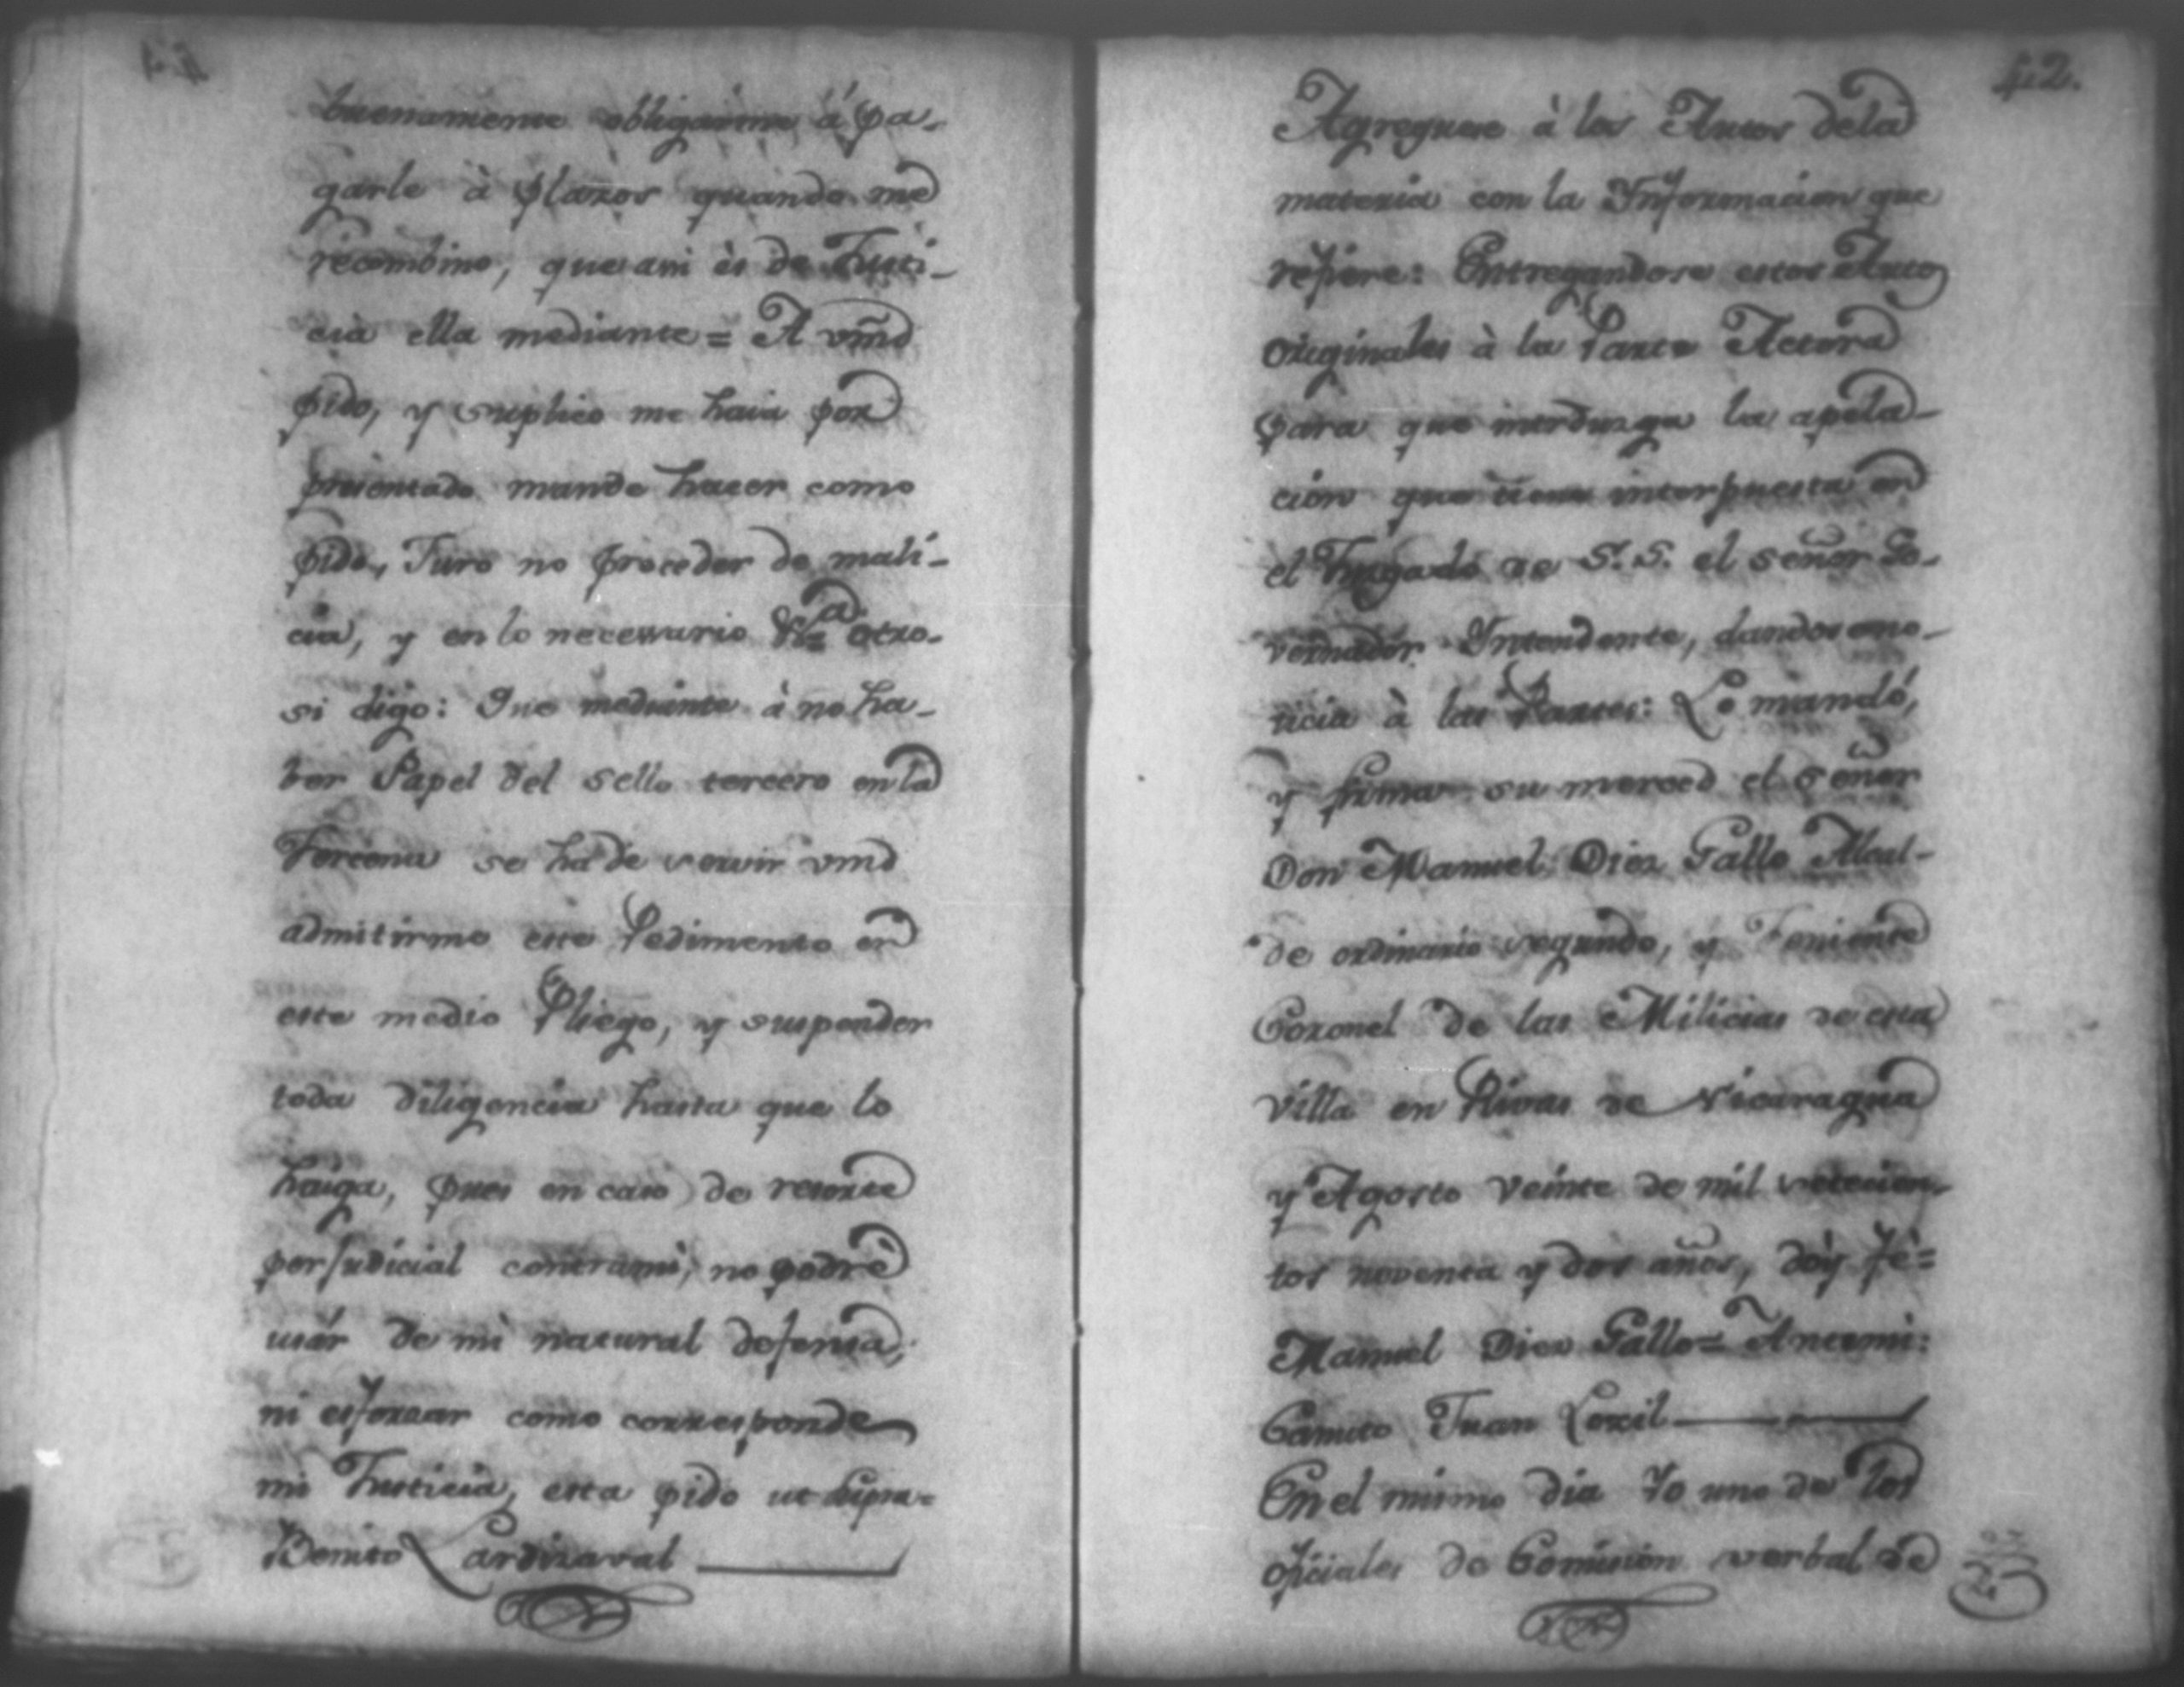 buenamente obligarme á pa-
garle à plazos quando me
recombino, que asi ès de Justi-
cia ella mediante = A vmd
pido, y suplico me haia por
presentado mande hacer como
pido, Juro no proceder de mali-
cia, y en lo necessario &a otro-
si digo: Que mediante à no ha-
ber Papel del sello tercero en la
Tercena se ha de servir vmd
admitirme este Pedimento en
este medio Pliego, y suspender
toda diligencia hasta que lo
haiga, pues en caso de resorte
perjudicial contrami, no podrè
usár de mi natural defensa,
ni esforzar como corresponde
mi Justicia, esta pido ut supra=
Benito Lardizaval
42.
Agreguese à los Autos dela
materia con la Informacion que
refiere: Entregandose estos Autos
originales à la Parte Actora
para que introduzga la apela-
cion que tiene interpuesta en
el Juzgado de S.S. el señor Go-
vernador Intendente, dandose no-
ticia à las Partes: Lo mandó,
y firma su merced el señor
Don Manuel Diez Gallo Alcal-
de ordinario segundo, y Teniente
Coronel de las Milicias de esta
villa en Rivas de Nicaragua
y Agosto veinte de mil setecien-
tos noventa y dos años, dóy fè=
Manuel Diez Gallo= Antemi:
Canuto Juan Loxil
En el mismo dia Yo uno de los
oficiales de Comision verbal de